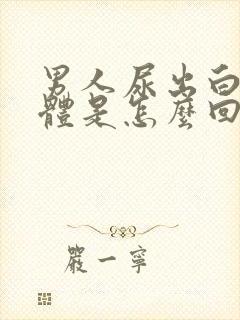 男人尿出白
體是怎麼回
嚴一寧